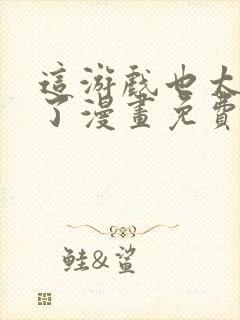 這游戲也太
了漫畫免費
鮭&鯊